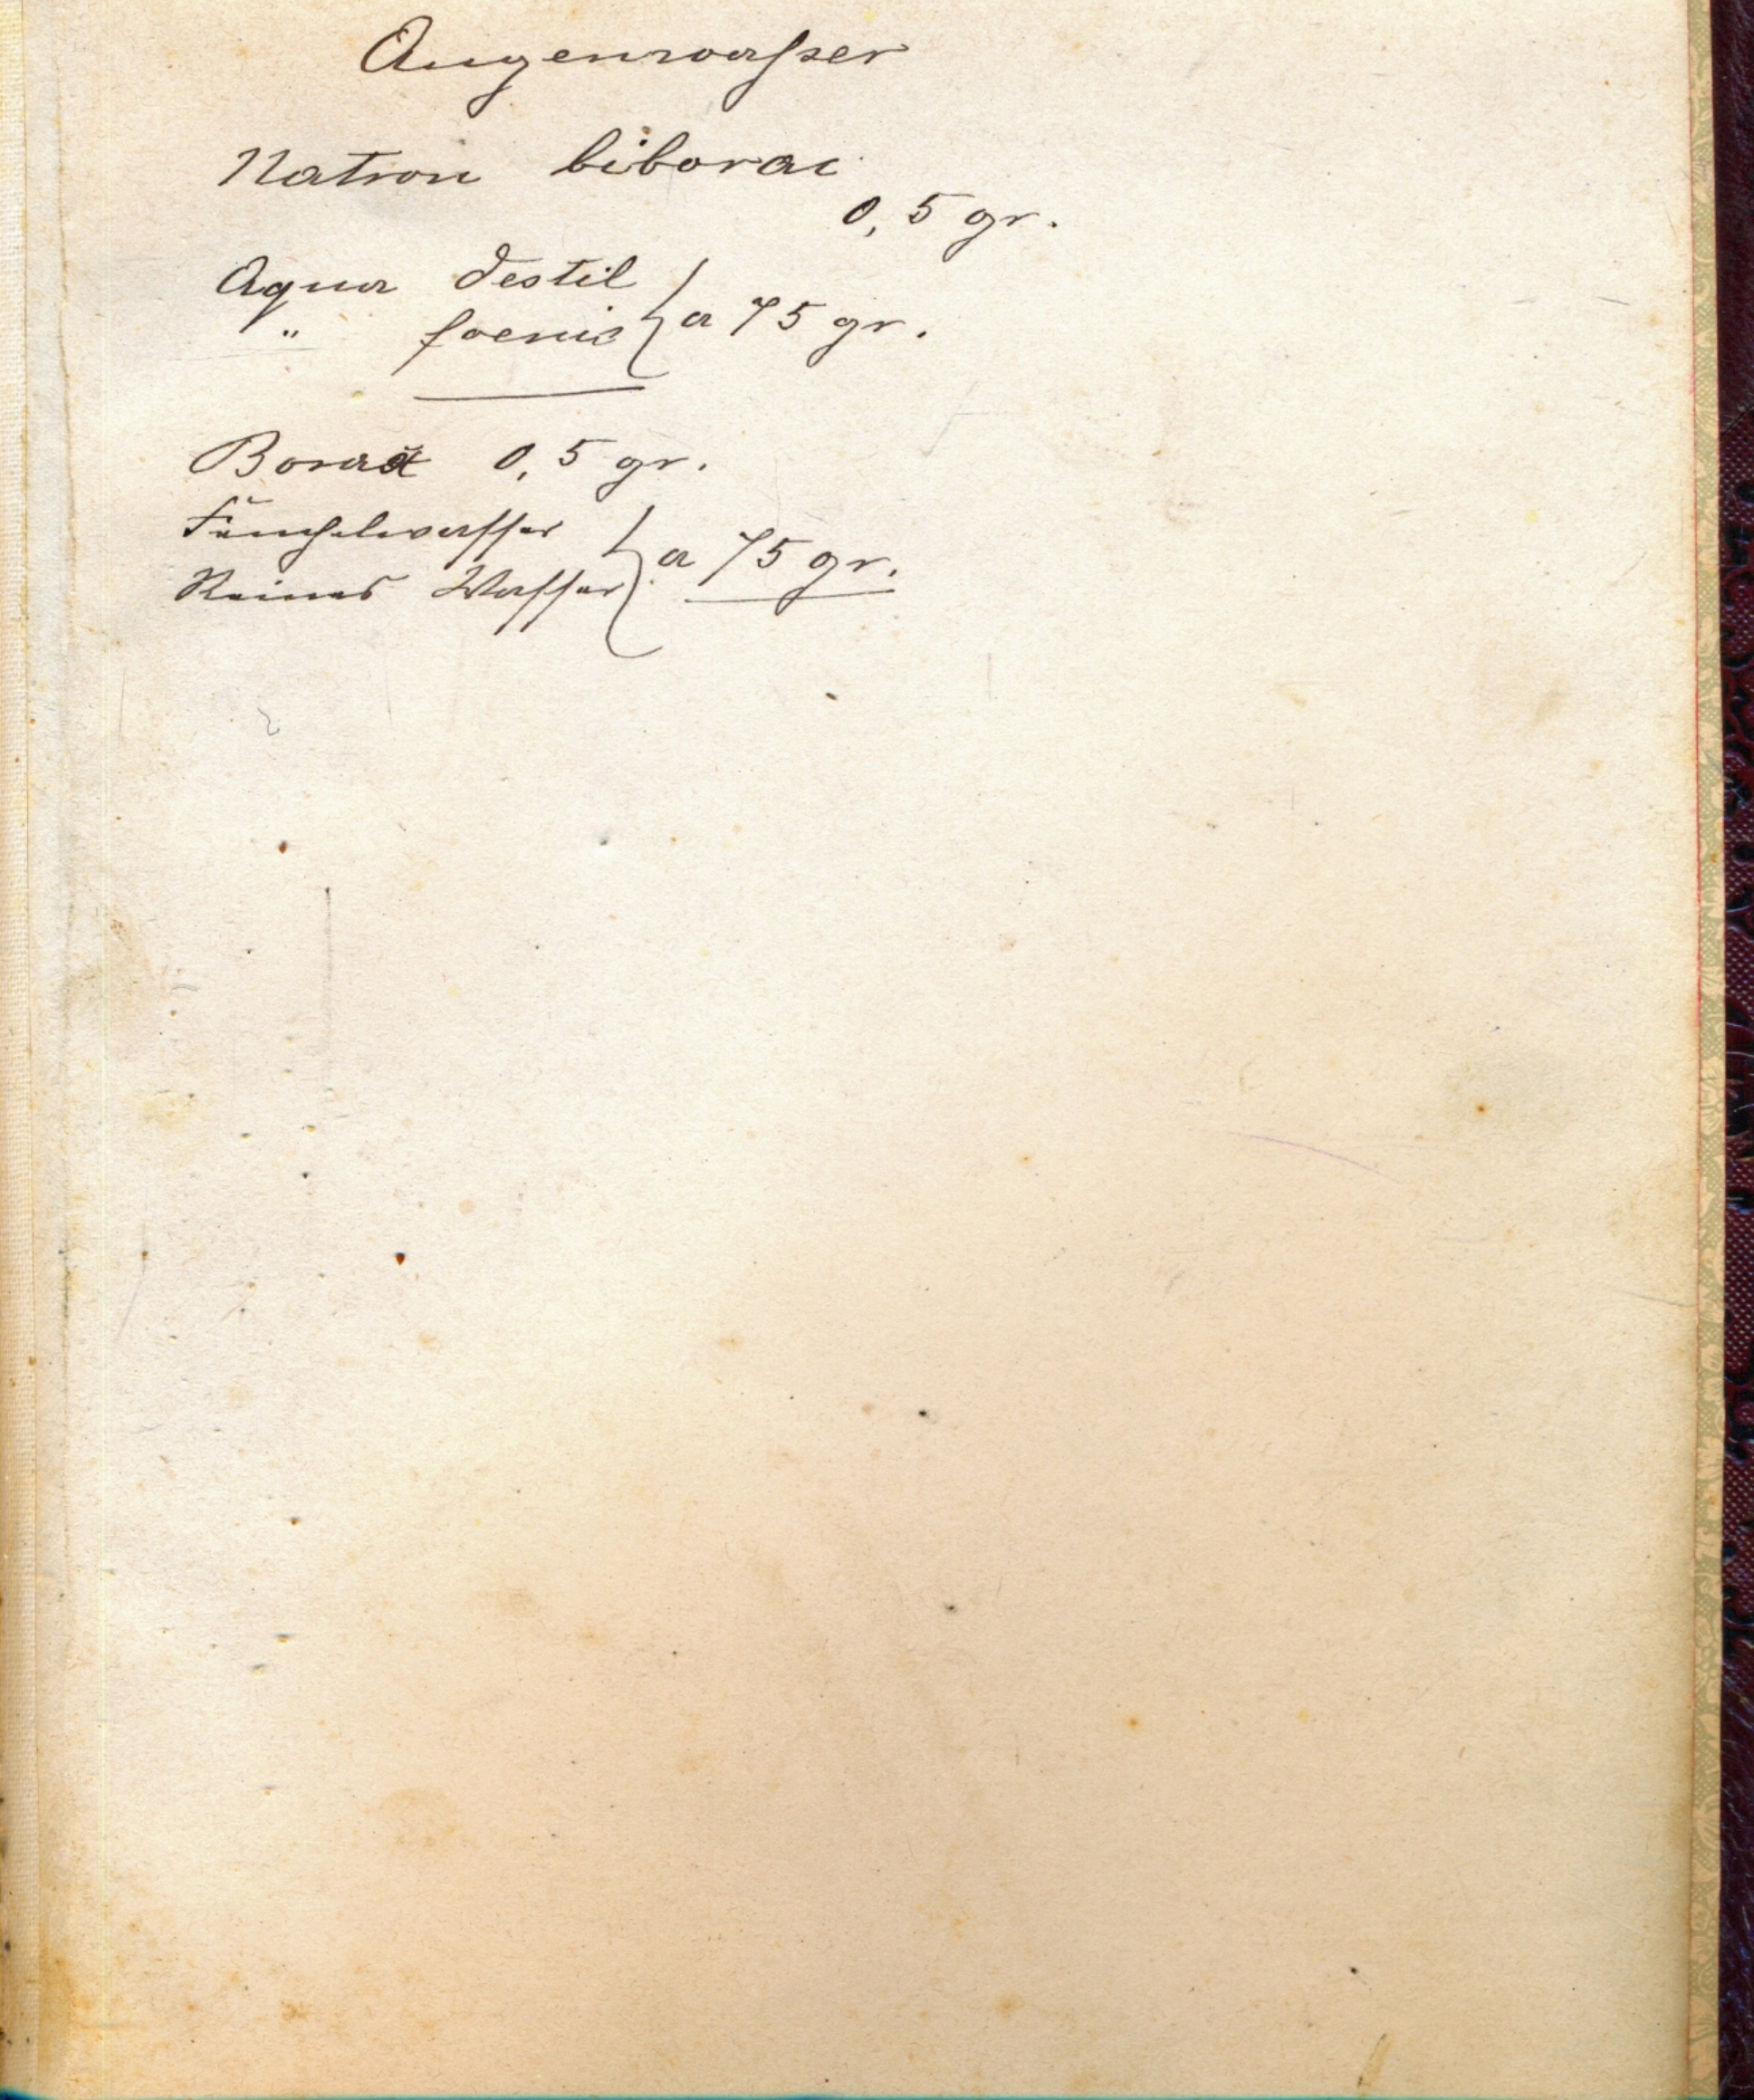 Augenwasser
Natron biborac
0,5 gr.
Aqua destil
" foenic } a 75 gr.
Borax 0,5 gr.
Fünchelwasser
Reines Wasser } a 75 gr.